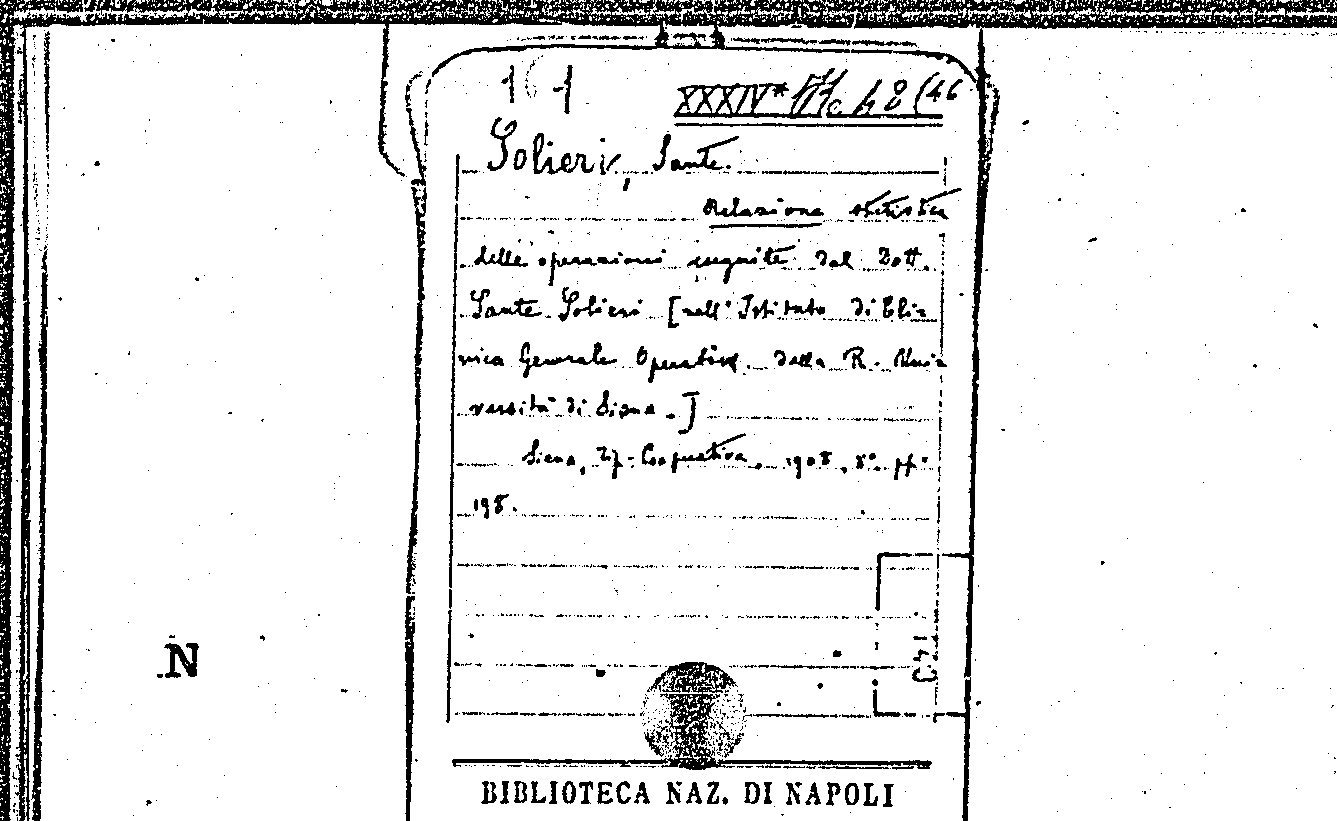 161
XXXIV*
Solieri, Sante.
Relazione statistica
delle operazioni eseguite dal Dott.
Sante Solieri [nell'Istituto di Cli=
nica Generale Operativa della R. Uni=
versità di Siena.]
Siena, Tip. Cooperativa, 1908, 8°. pp.
198.
N
BIBLIOTECA NAZ. DI NAPOLI